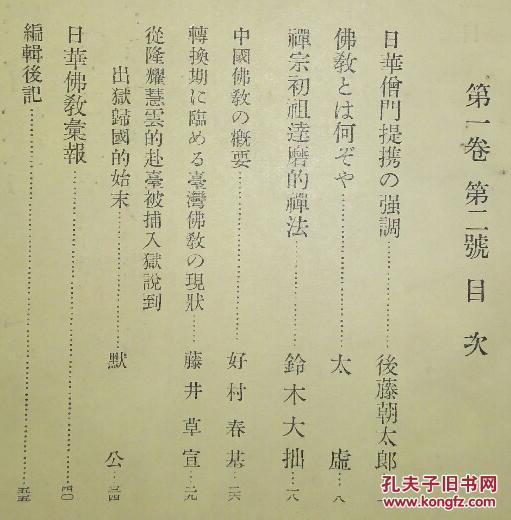 第一卷 第二號 目次
日華僧門提携の强調……後藤朝太郎 一
佛教とは何ぞや……太虛 八
禪宗初祖達磨的禪法……鈴木大拙 一八
中國佛教の概要……好村春基 二六
轉換期に臨める臺灣佛教の現狀……藤井草宣 二九
從隆耀慧雲的赴臺被捕入獄說到
出獄歸國的始末……默公 三四
日華佛教彙報……四〇
編輯後記……五五
孔夫子旧书网
www.kongfz.com